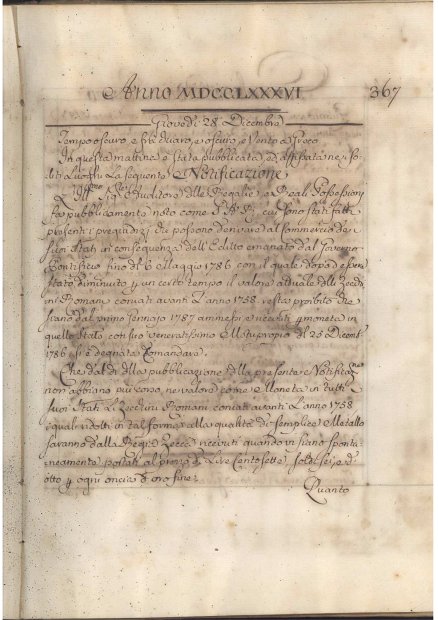 Anno MDCCLXXXVI. 367
Giovedì 28 Dicembre
Tempo oscuro e, e oscuro, e Vento a Greco
In questa mattina è stata pubblicata, ed affissata ne' so-
liti Luoghi La seguente Notificazione
L' Ill.mo Sig.r Auditore delle Regalie, e Reali Possessioni
fa pubblicamente noto come S. A. R., cui sono stati fatti
presenti i pregiudizj che possono derivare al Commercio de'
suoi Stati in conseguenza dell' Editto emanato dal Governo
Pontificio fino dì 6 Maggio 1786 con il quale dopo d'essere
stato diminuito p un certo tempo il valore attuale delli Zecchi-
ni Romani coniati avanti L' anno 1758 resta proibito che
siano dal primo Gennajo 1787 ammessi, e ricevuti p moneta in
quello Stato, con suo veneratissimo Motuproprio del 25 Dicemb.
1786 si è degnata Comandare.
Che dal dì della pubblicazione della presente Notificaz.e
non abbiano più corso, ne valore come Moneta in tutti i
suoi Stati Li Zecchini Romani coniati avanti L' anno 1758
i quali ridotti in tal forma alla qualità di semplice Metallo
saranno dalla Regia Zecca ricevuti quando vi siano spont-
aneamente portati al prezzo di Lire Centosette, soldi sei, e d.
otto p ogni oncia d' oro fine.
Quanto